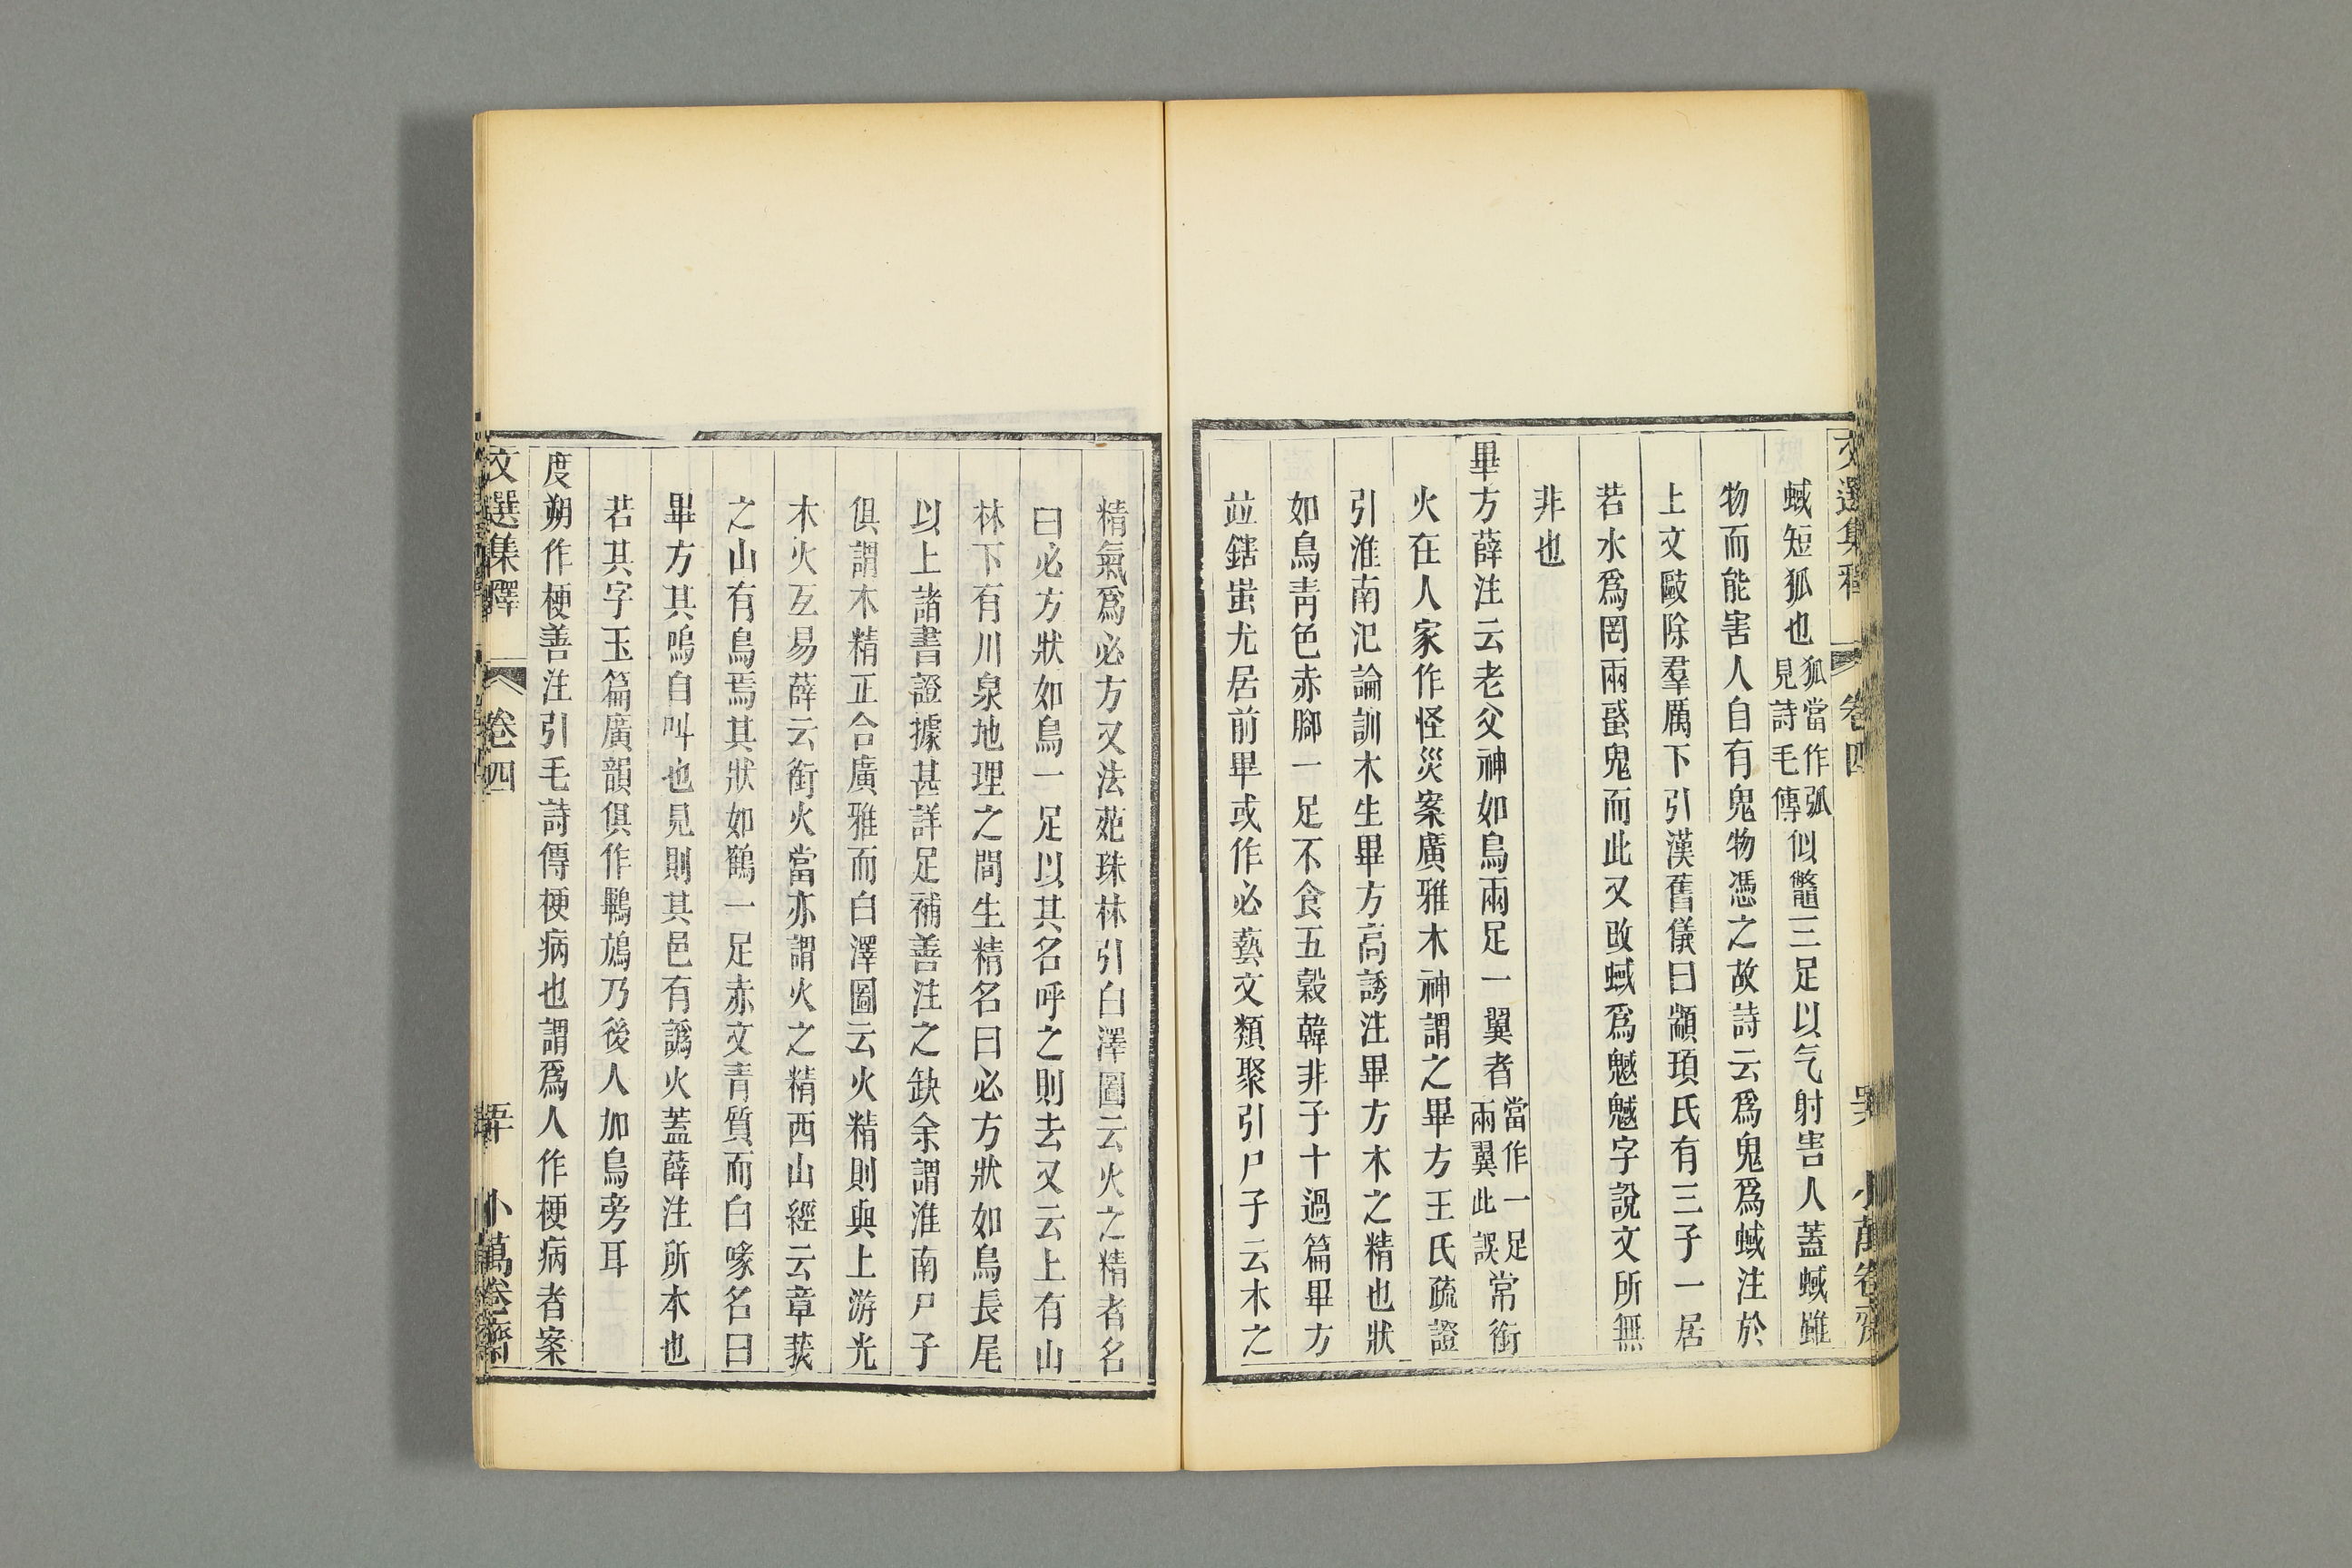 文選集釋 卷四 小萬卷齋
蜮短狐也狐當作弧見詩毛傳似鼈三足以气射害人蓋蜮雖
物而能害人自有鬼物憑之故詩云爲鬼爲蜮注於
上文毆除羣厲下引漢舊儀曰顓頊氏有三子一居
若水爲罔兩蜮鬼而此又改蜮爲魊魊字說文所無
非也
畢方薛注云老父神如鳥兩足一翼者當作一足兩翼此誤常銜
火在人家作怪災案廣雅木神謂之畢方王氏疏證
引淮南氾論訓木生畢方高誘注畢方木之精也狀
如鳥青色赤腳一足不食五穀韓非子十過篇畢方
竝鎋蚩尤居前畢或作必藝文類聚引尸子云木之
精氣爲必方又法苑珠林引白澤圖云火之精者名
曰必方狀如鳥一足以其名呼之則去又云上有山
林下有川泉地理之間生精名曰必方狀如鳥長尾
以上諸書證據甚詳足補善注之缺余謂淮南尸子
俱謂木精正合廣雅而白澤圖云火精則與上游光
木火互易薛云銜火當亦謂火之精西山經云章莪
之山有鳥焉其狀如鶴一足赤文青質而白喙名曰
畢方其鳴自叫也見則其邑有譌火蓋薛注所本也
若其字玉篇廣韻俱作鷝鴋乃後人加鳥旁耳
度朔作梗善注引毛詩傳梗病也謂爲人作梗病者案
文選集釋 卷四 小萬卷齋